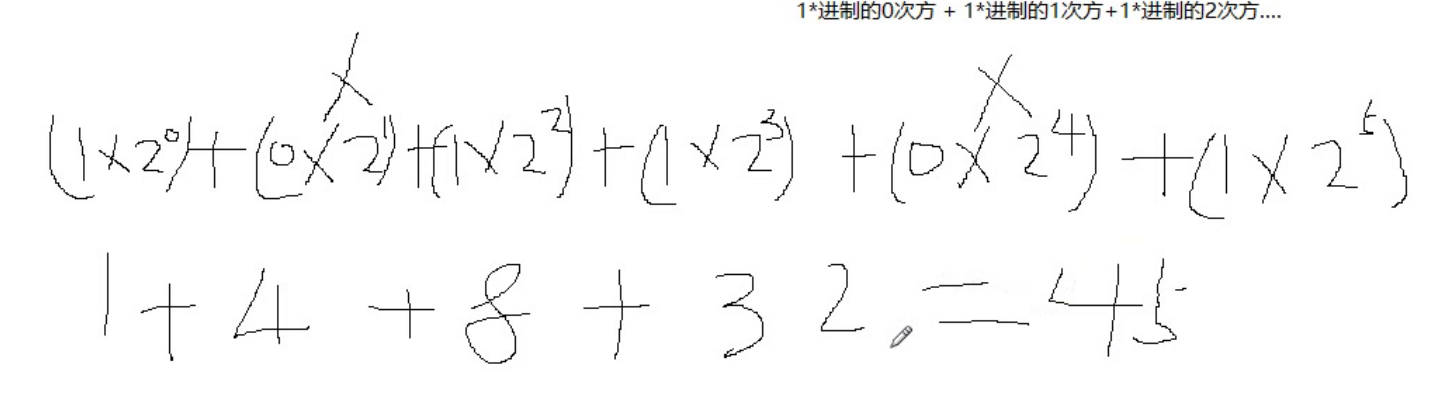 1*进制的0次方 + 1*进制的1次方+1*进制的2次方....
(1×2⁰)+(0×2¹)+(1×2²)+(1×2³)+(0×2⁴)+(1×2⁵)
1+4+8+32=45